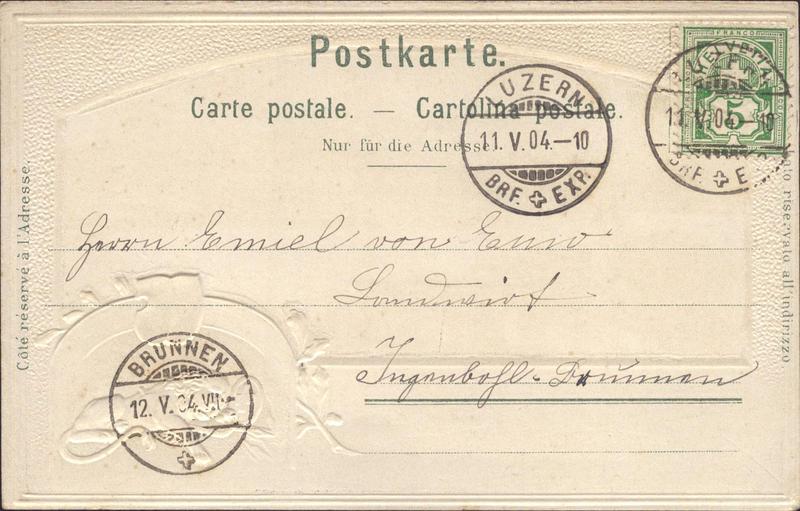 Postkarte.
Carte postale. — Cartolina postale.
Nur für die Adresse
FRANCO
HELVETIA
5
LUZERN
11.V.04.—10
BRF. EXP.
11.V.04.—10
BRF. E
Côté réservé à l'Adresse.
Lato riservato all'indirizzo
Herrn Emiel von Euw
Landwirt
Ingenbohl-Brunnen
BRUNNEN
12.V.04.VII